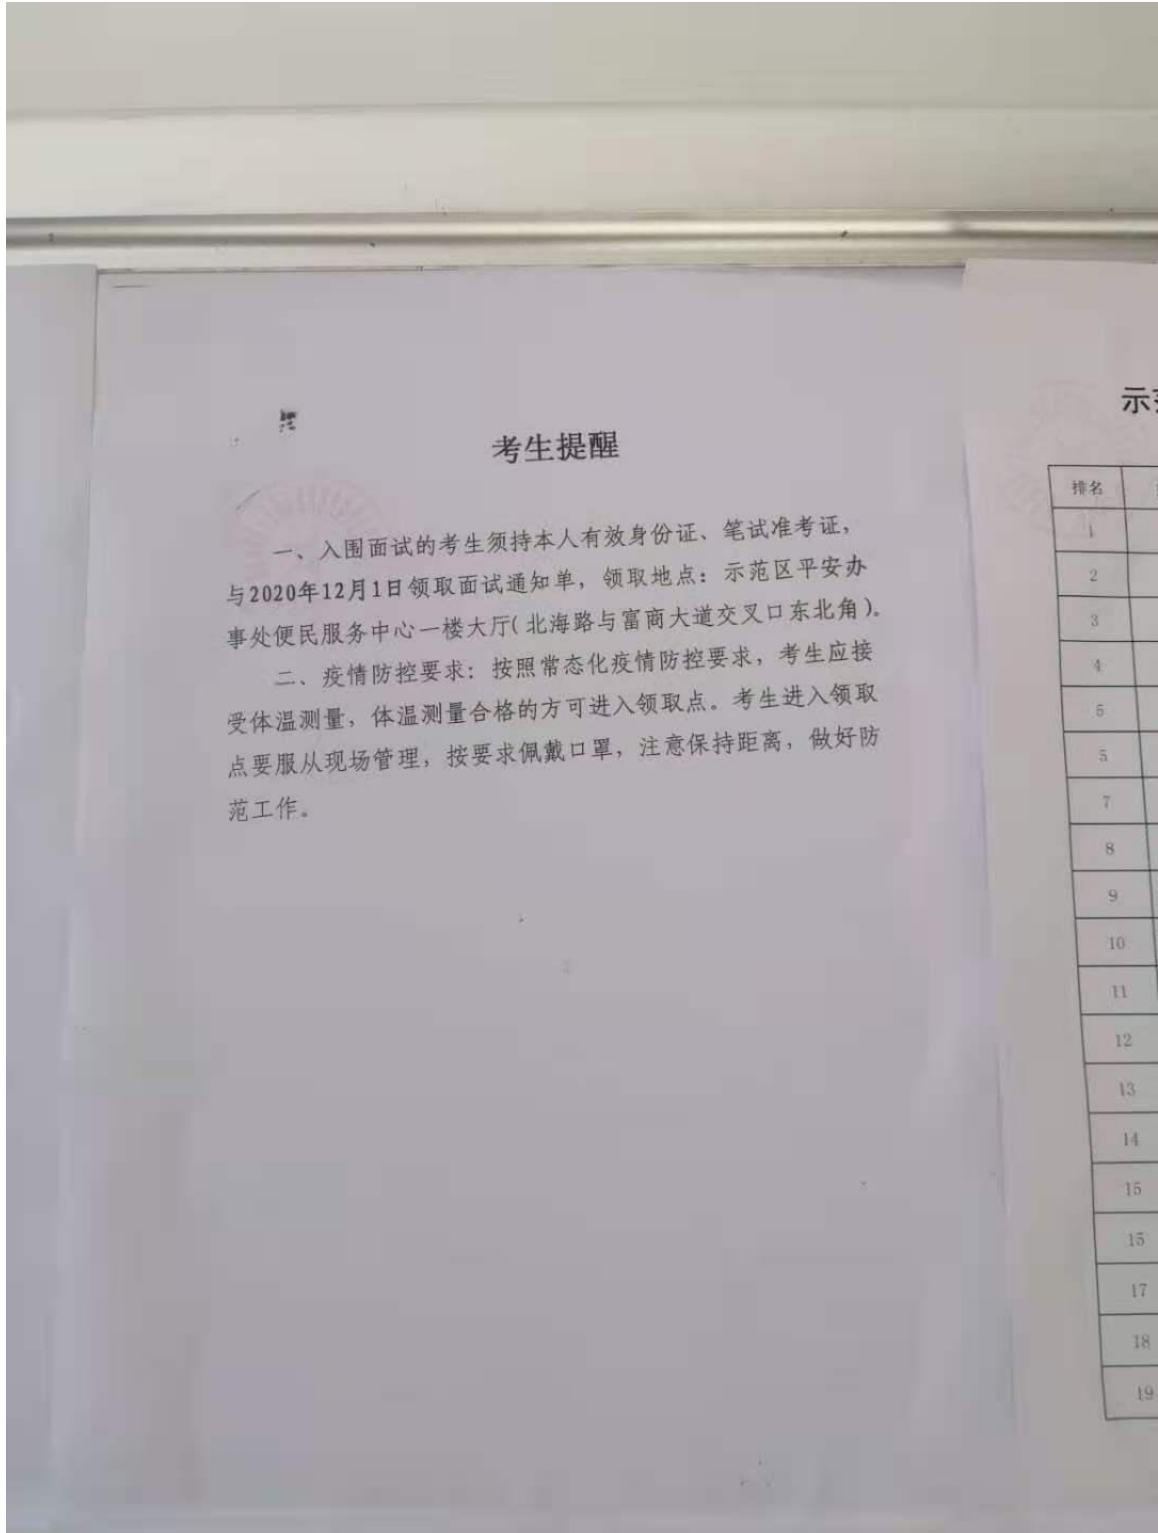 考生提醒
一、入围面试的考生须持本人有效身份证、笔试准考证,
与2020年12月1日领取面试通知单, 领取地点: 示范区平安办
事处便民服务中心一楼大厅(北海路与富商大道交叉口东北角)。
二、疫情防控要求: 按照常态化疫情防控要求, 考生应接
受体温测量, 体温测量合格的方可进入领取点。考生进入领取
点要服从现场管理, 按要求佩戴口罩, 注意保持距离, 做好防
范工作。
示
排名
1
2
3
4
5
5
7
8
9
10
11
12
13
14
15
15
17
18
19